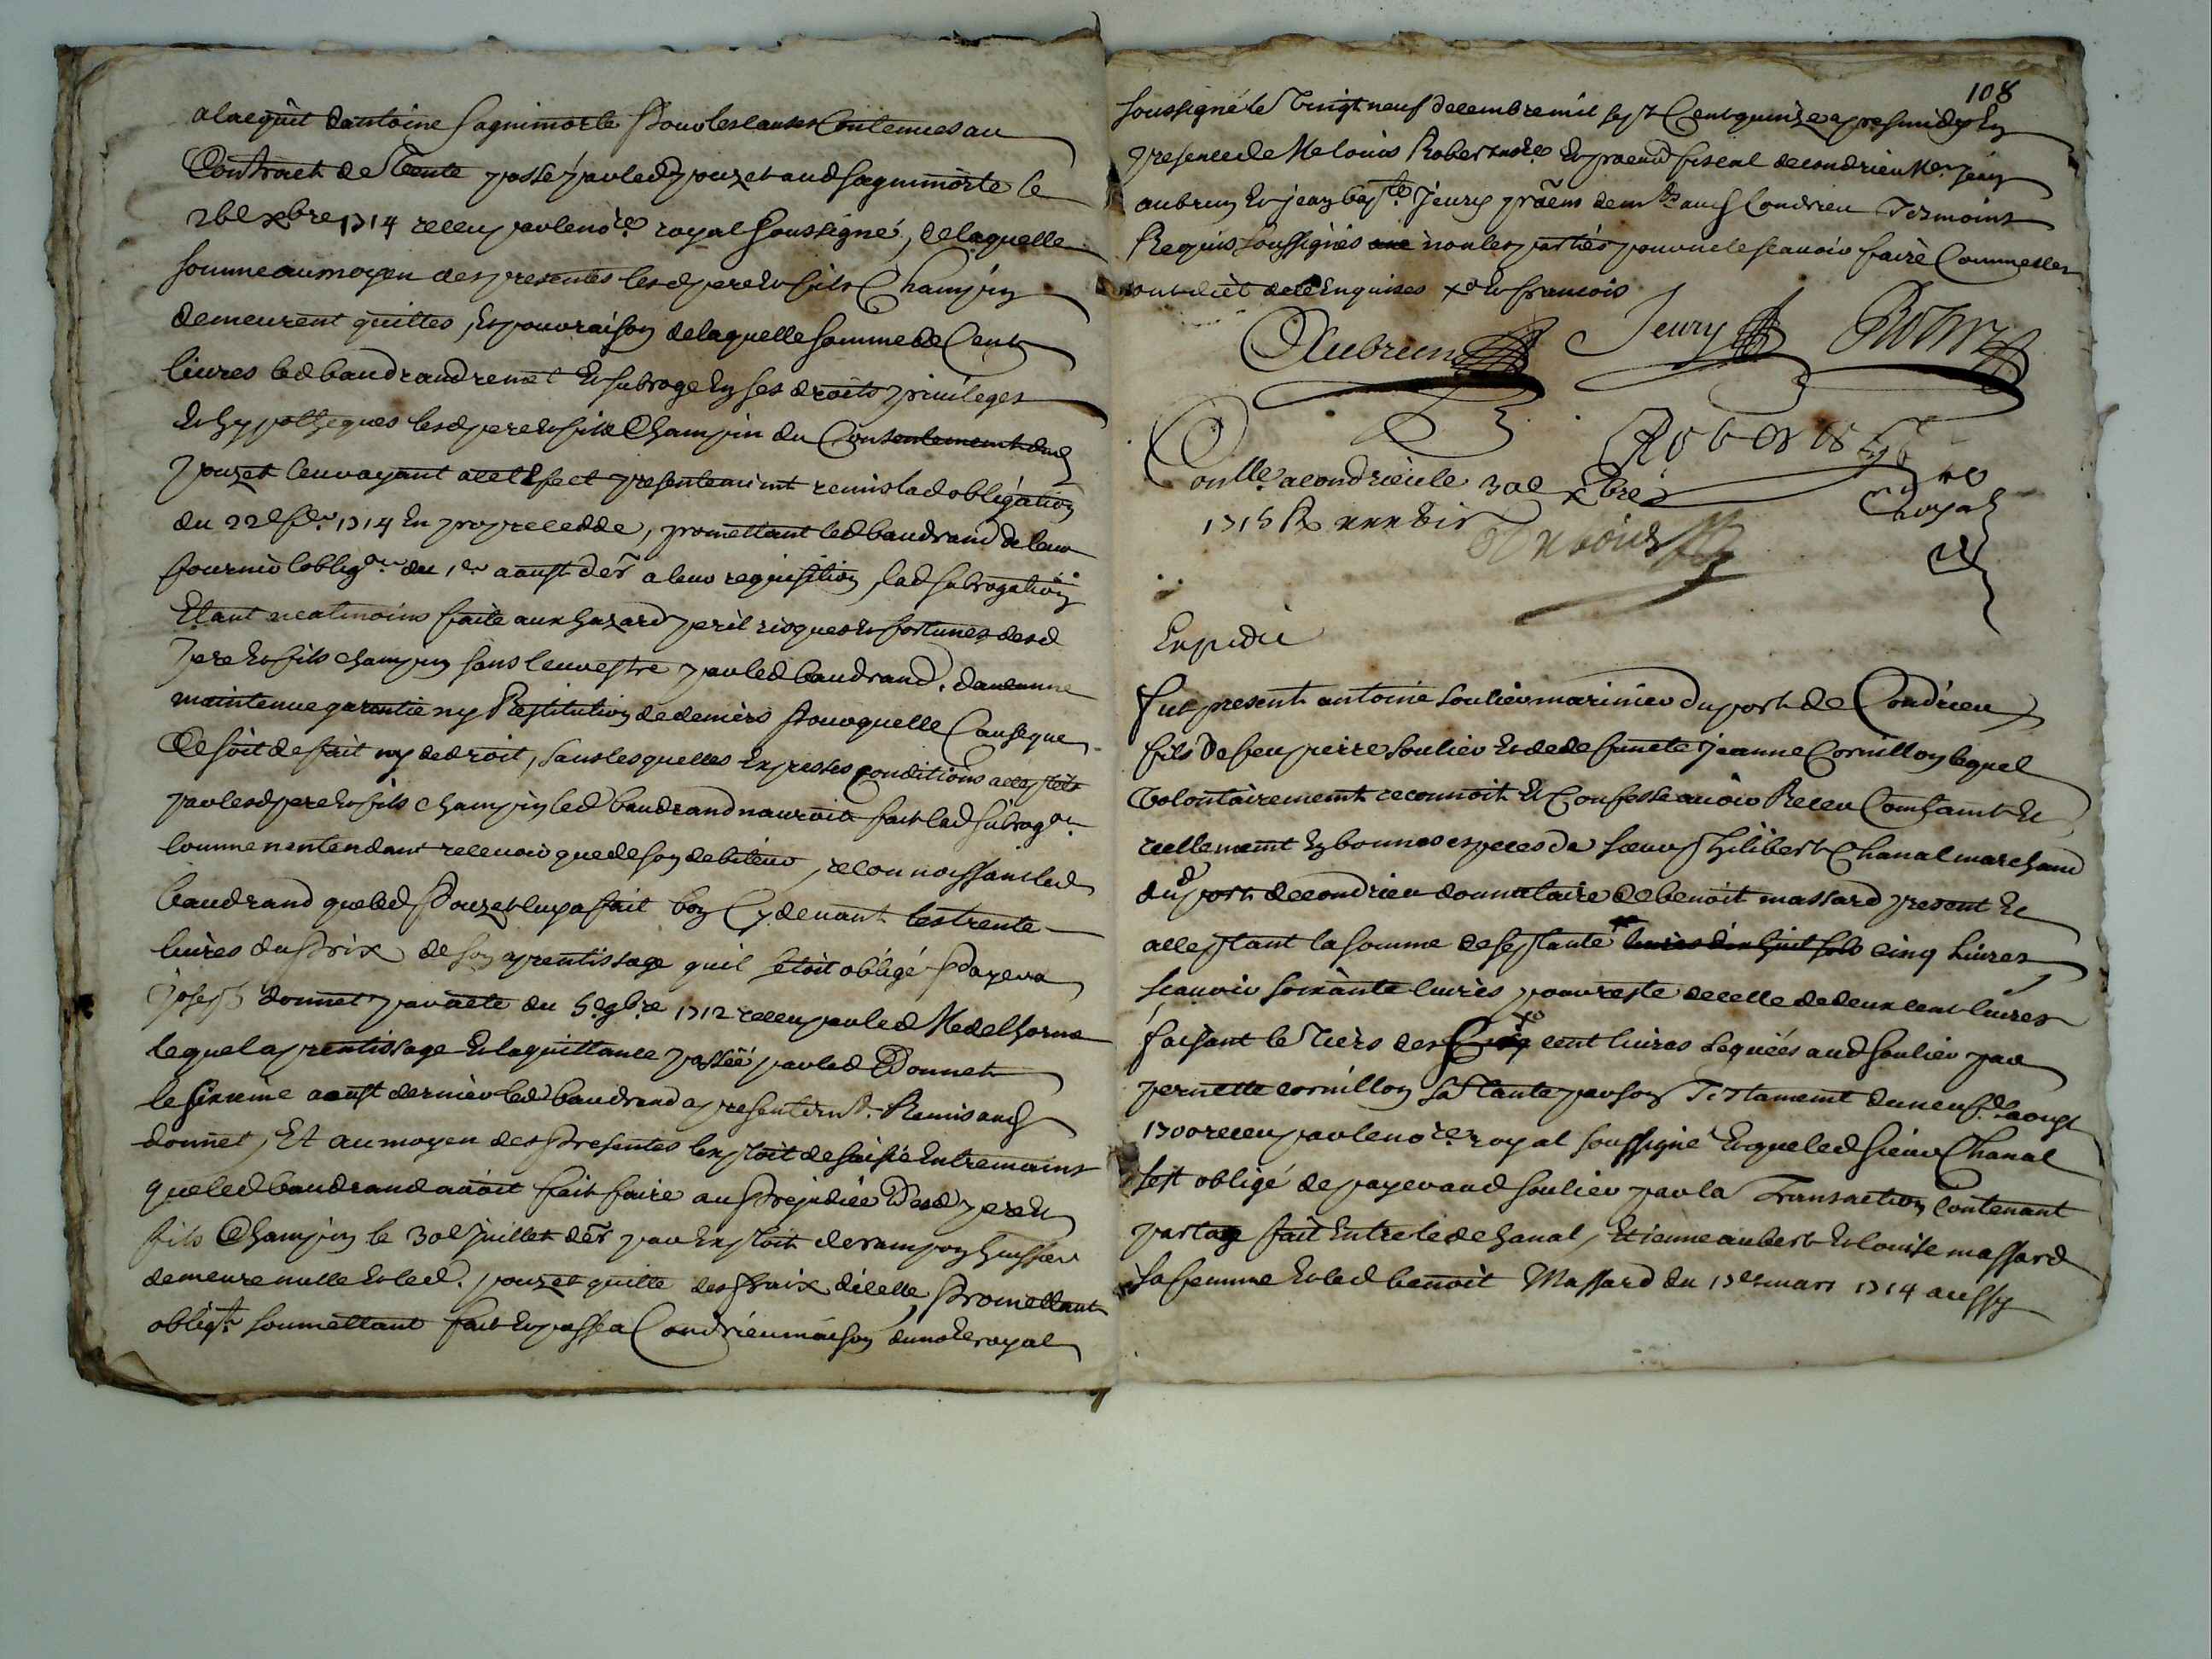 alacquit dantoine Sagnimorte Pour les causes Contenues au
Contract de Vente passé par led pouzet aud Sagnimorte le
26e xbre 1714 receu par le nore royal Soussigné, de laquelle
somme au moyen des presentes lesd pere et fils Champin
demeurent quittes, Et pour raison de laquelle somme de Cent
livres led baudrand remet Et subroge En ses droits privileges
Et hypotheques lesd pere et fils Champin du Consentement dud
pouzet leur ayant a cet Effect presentement remis lad obligation
du 22e 1714 En procedde, promettant led baudrand de leur
fournir lobligon du 1er aoust der a leur requisition, lad subrogation
Etant neatmoins faite aux hazard peril risques et fortunes desd
Pere et fils champin sans leur estre par led baudrand, daucunne
maintenue garentie ny Restitution de deniers Pour quelle Cause que
Ce soit de fait ny de droit, sans lesquelles Expresses conditions acceptées
par lesd pere et fils champin led baudrand nauroit fait lad subrogon
comme nentendant recevoir que de son debiteur, reconnoissant led
baudrand que led Pouzet luy a fait bon Cy devant les trente
livres du Prix de son aprentissage quil setoit obligé Payer a
Joseph donnet par acte du 5e 9bre 1712 receu par led Me delhorme
lequel aprentissage Et la quittance passée par led Donnet
le sixieme aoust dernier led baudrand a presentemt Remis aud
donnet, Et au moyen des Presentes lexploit de saisie Entre mains
que led baudrand avoit fait faire au Prejudice Desd pere et
fils Champin le 30e Juillet der par Exploit de rampon huissier
demeure nulle Et led. pouzet quitte des fraix dicelle, Promettant
obligt soumettant fait Et passé a Condrieu maison du nore royal
108
soussigné le Vingt neuf decembre mil sept Cent quinze apres midy En
presence de Me louis Robert nore Et procur fiscal de condrieu Mer Jean
aubrun Et jean bapte Jeury aud Condrieu Tesmoins
Requis soussignés non les parties pour ne le scavoir faire Comme elles
ont dict de ce Enquises xo Et francois
Aubrun Jeury
Robert
Conlle a condrieu le 30e xbre
1715 R
royal
Expedié
fut present antoine soulier marinier du port de Condrieu
fils de feu pierre soulier Et de defuncte Jeanne Cornillon lequel
Volontairement reconnoit Et Confesse avoir Receu Comptant Et
reellement En bonnes especes de sieur philibert Chanal marchand
dud port de condrieu donnataire de benoit massard present Et
acceptant la somme de septante livres dix huit sols cinq livres
scavoir soixante livres pour reste de celle de deux cent livres
faisant le Tiers des six cent livres leguées aud soulier par
pernette cornillon sa Tante par son Testament du neuf aoust
1700 receu par le nore royal soussigné Et que led sieur Chanal
sest obligé de payer aud soulier par la Transaction Contenant
partage fait Entre led chanal, Etienne aubert Et louise massard
sa femme Et led benoit Massard du 13e mars 1714 aussy